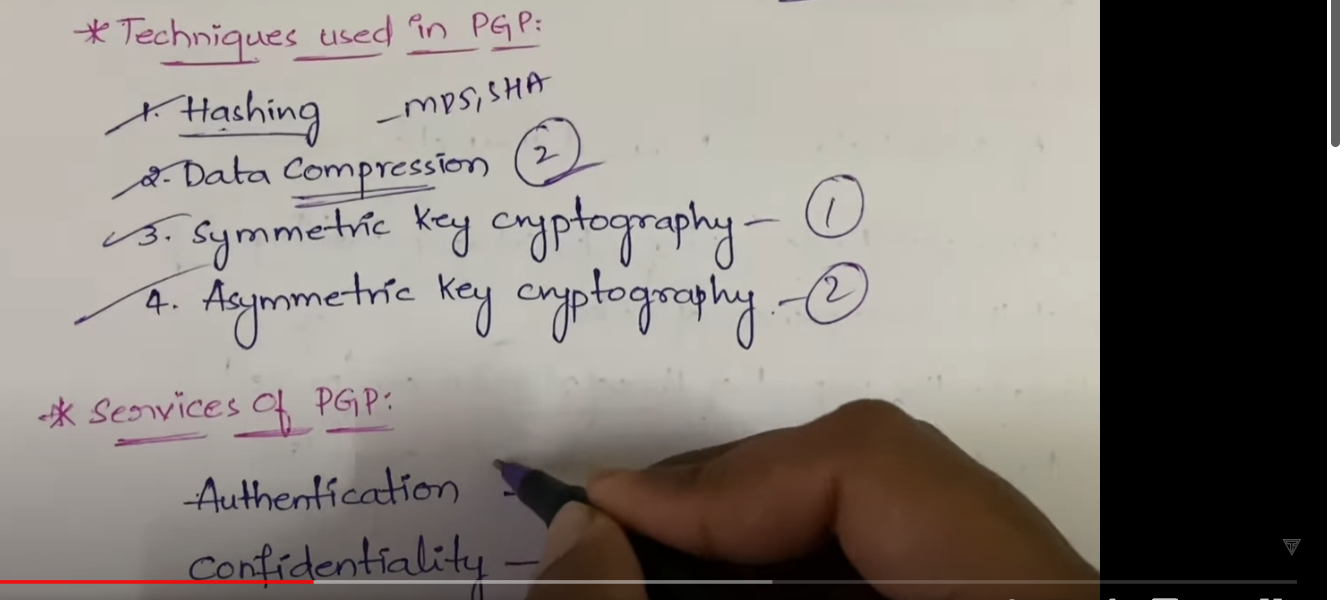 * Techniques used in PGP:
1. Hashing - MD5, SHA
2. Data Compression 2
3. Symmetric key cryptography - 1
4. Asymmetric key cryptography. - 2
* Services Of PGP:
- Authentication -
Confidentiality -